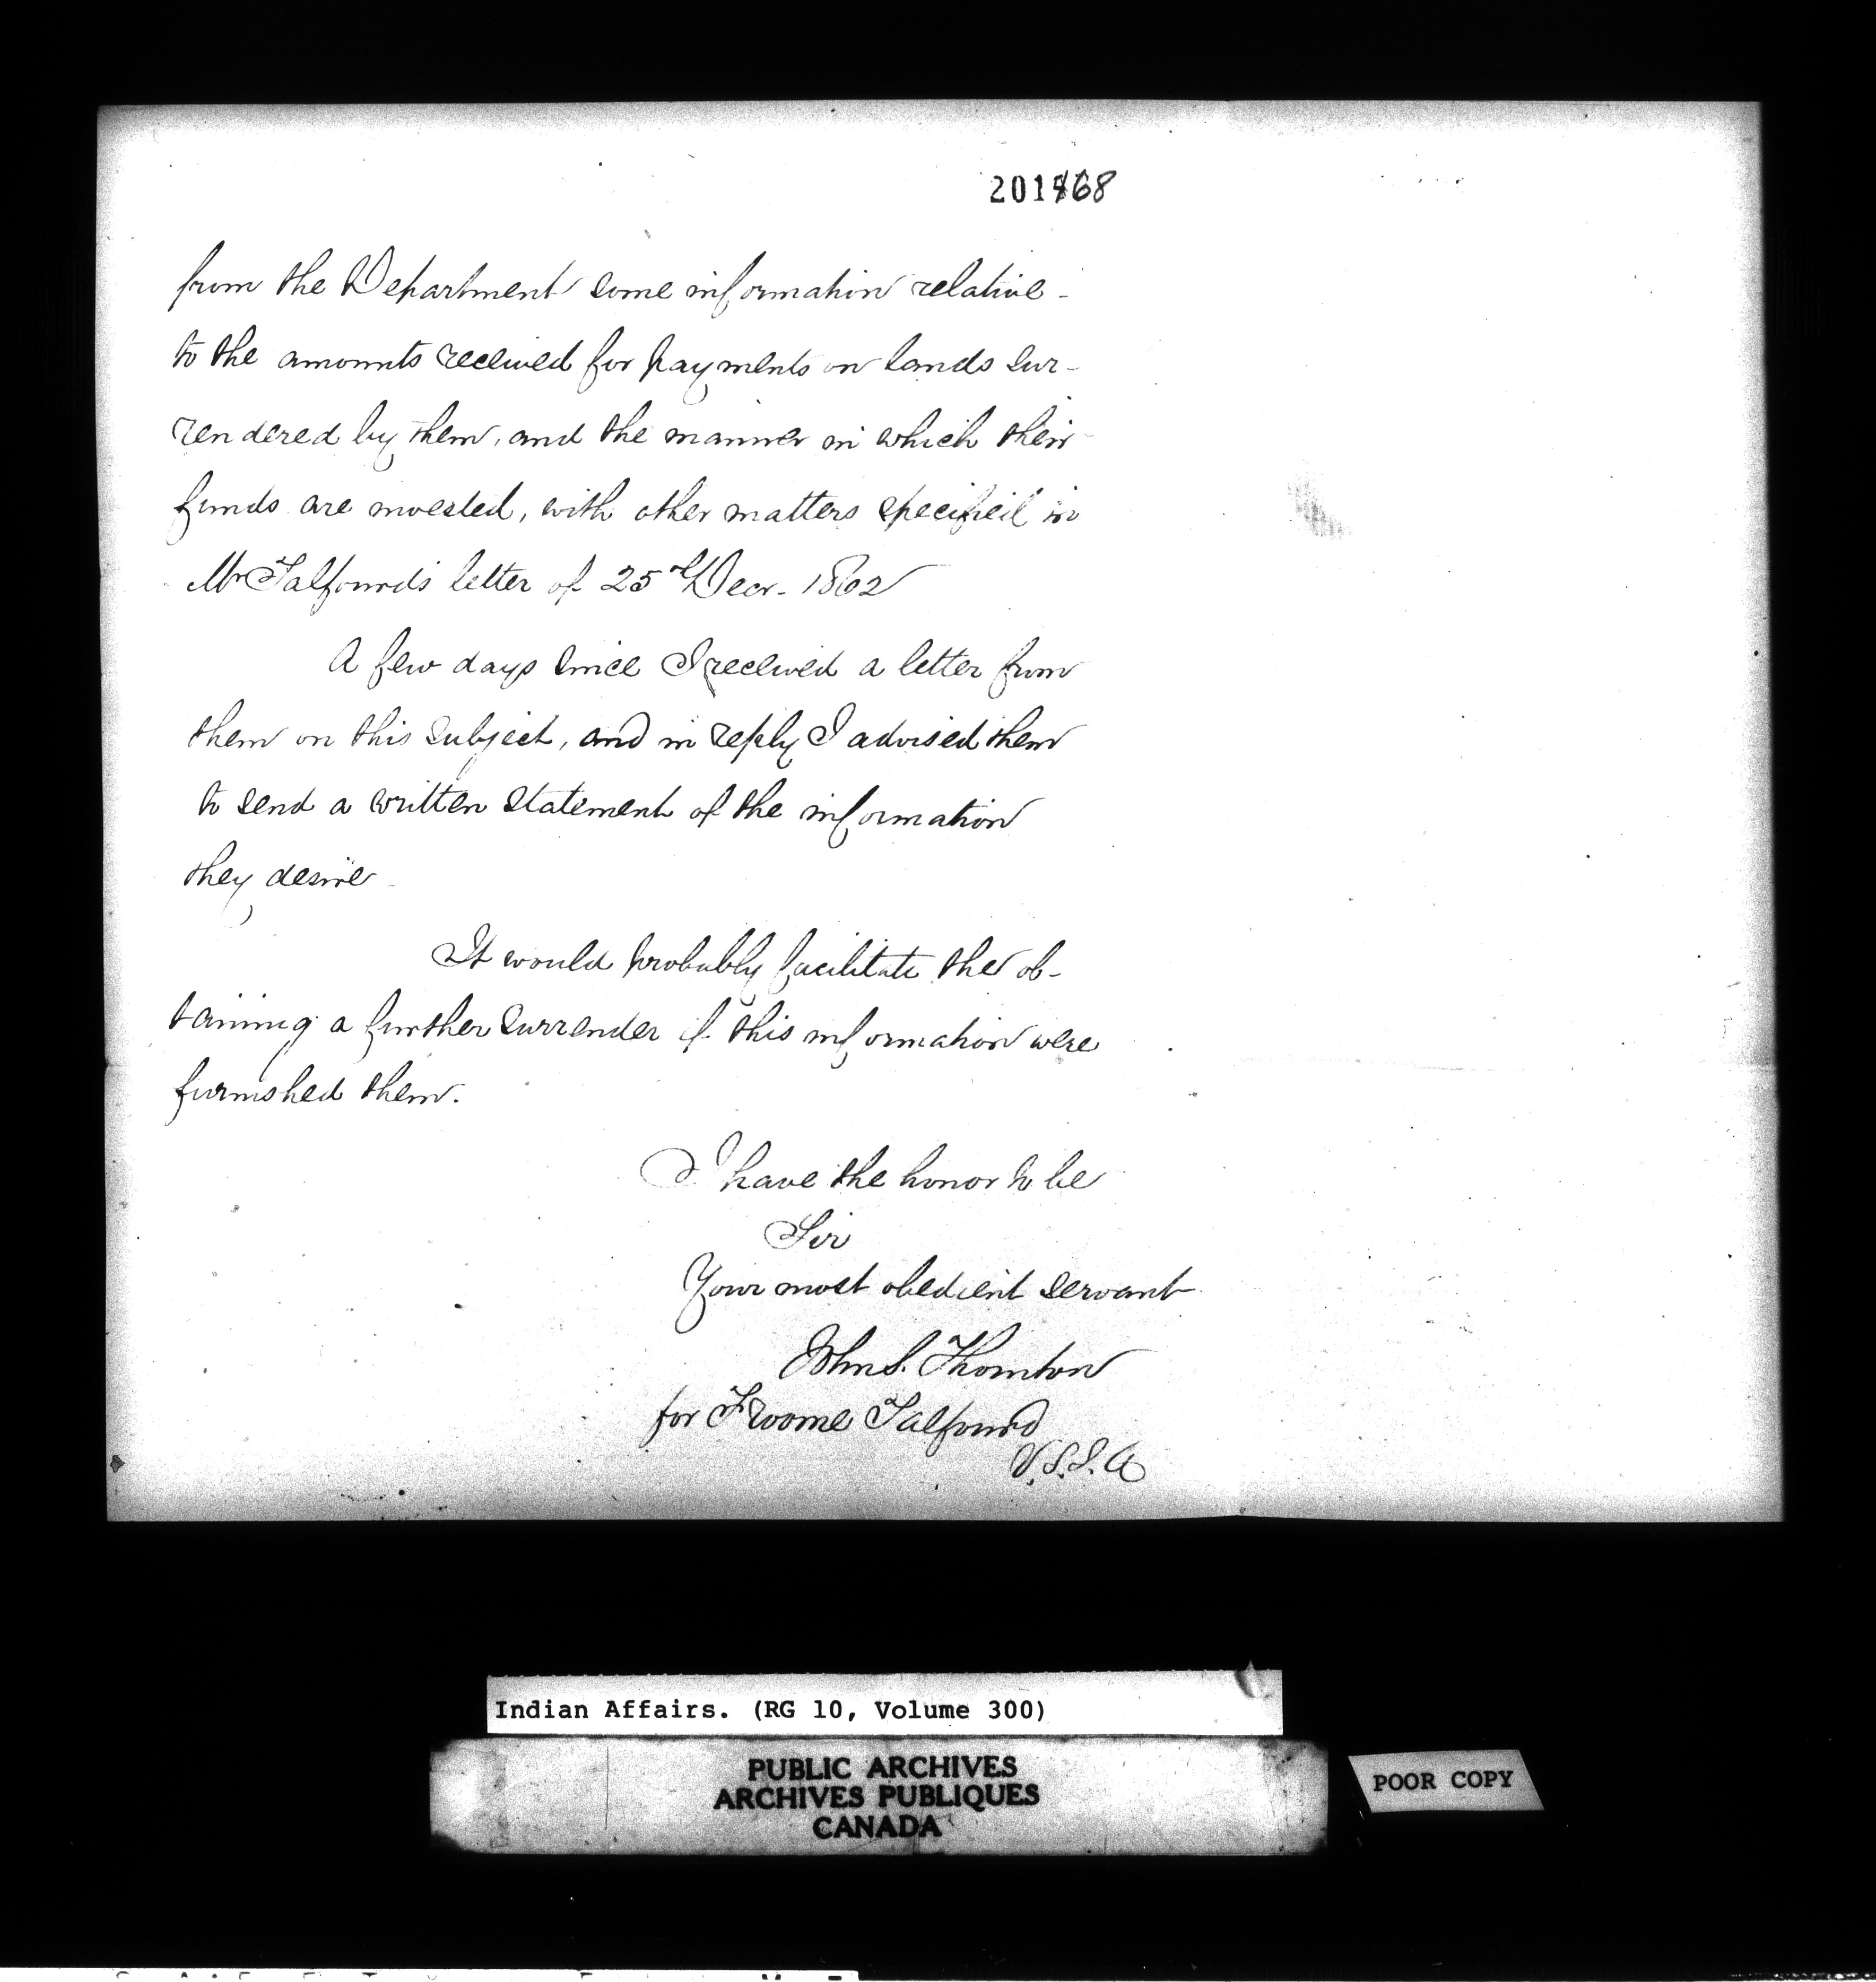 201468
from the Department some information relative
to the amounts received for payments on lands sur-
rendered by them, and the manner in which their
funds are invested, with other matters specified in
Mr Talfourds letter of 25th Decr. 1862
A few days since I received a letter from
them on this subject, and in reply I advised them
to send a written statement of the information
they desire
It would probably facilitate the ob-
taining a further surrender if this information were
furnished them.
I have the honor to be
Sir
Your most obedient servant
John S. Thornton
for Froome Talfourd
V.S.I.A
Indian Affairs. (RG 10, Volume 300)
PUBLIC ARCHIVES
ARCHIVES PUBLIQUES
CANADA
POOR COPY